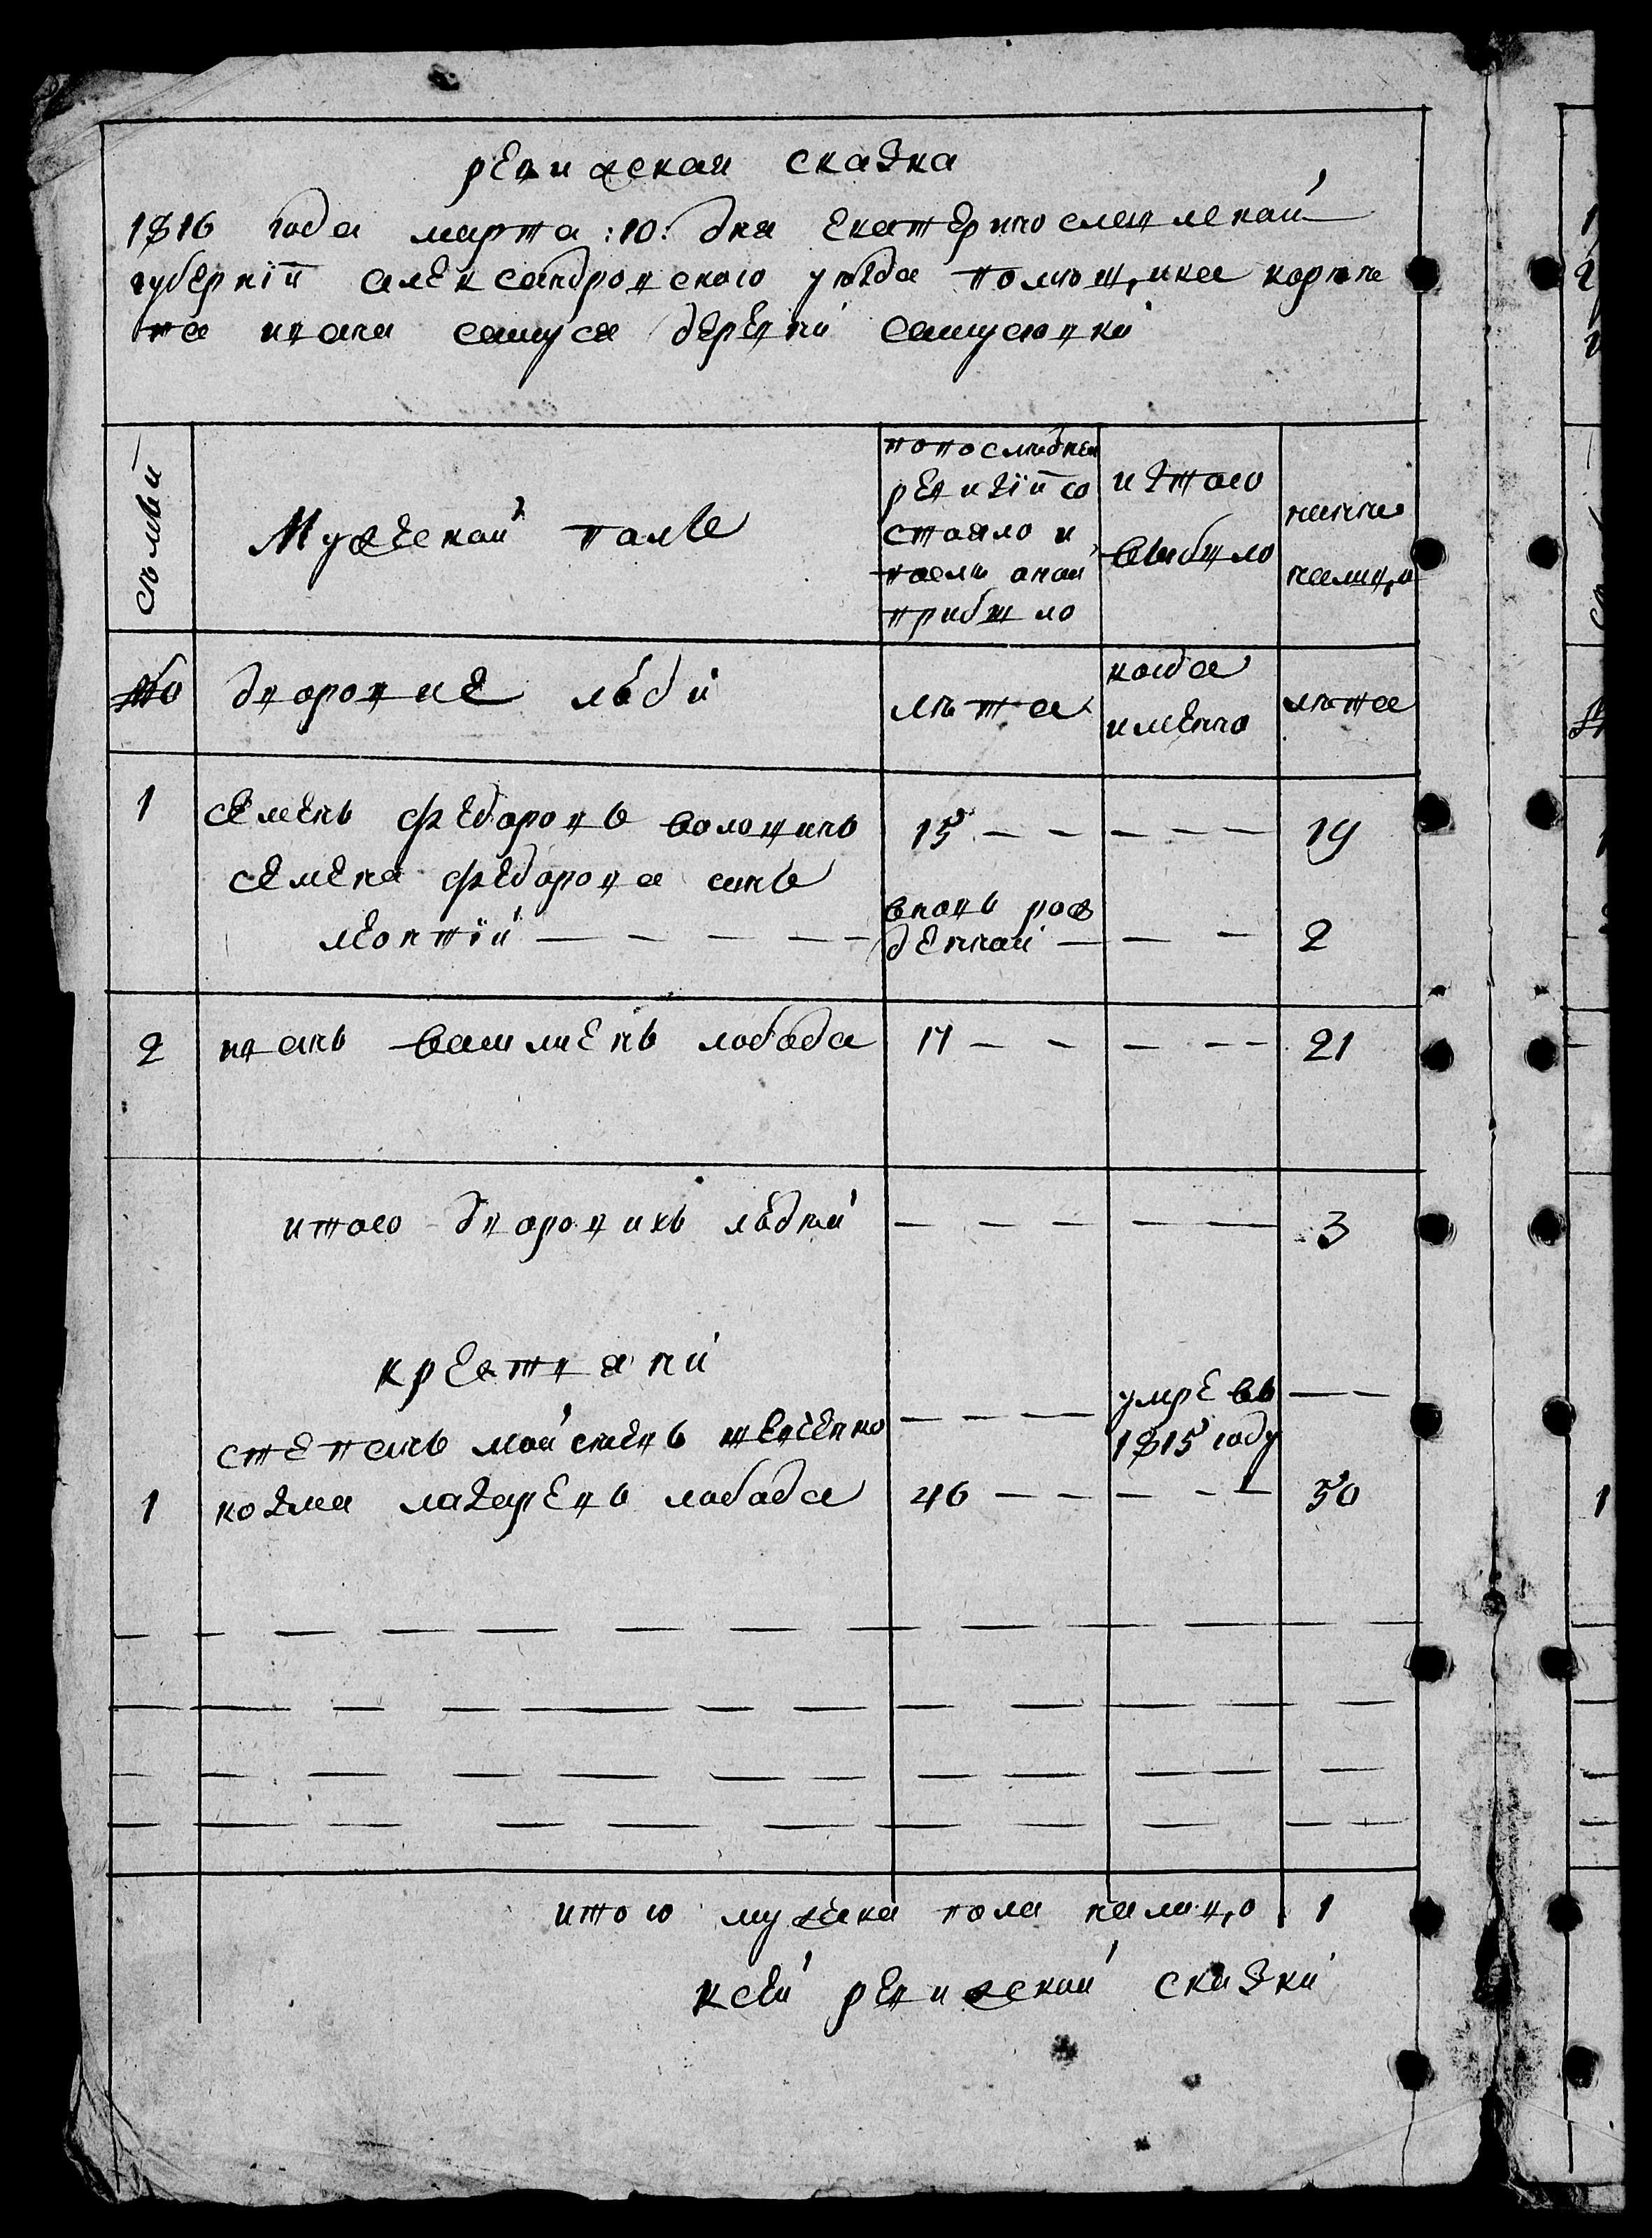 ревизская сказка
1816 года марта :10: дня екатеринославской
губернїи александровского уѣзда помѣщика корне
та ивана самуся деревни самусювки
семьи
Мужеской полъ
попоследней
ревизїи со
стояло и
послѣ оной
прибыло
изтого
выбыло
ныне
налицо
№
дворовие люди
лѣта
когда
именно
лѣта
1 семенъ федоровъ воловинъ 15 — — — — — 19
семена федорова синъ
леонтїй — — — — — вновь рож
денной — — — 2
2 иванъ василиевъ лобода 17 — — — — — 21
итого дворовихъ людей — — — — — 3
крестяни
степанъ мойсеевъ — — — умре въ — —
1815 году
1 козма лазаревъ лобода 46 — — — — — 50
итого мужеска пола налицо 1
ксей ревизской сказки